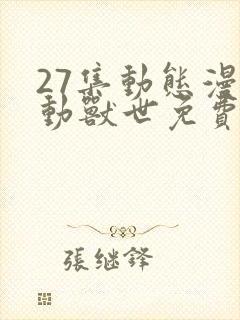 27集動態漫
動獸世免費
張继鋒